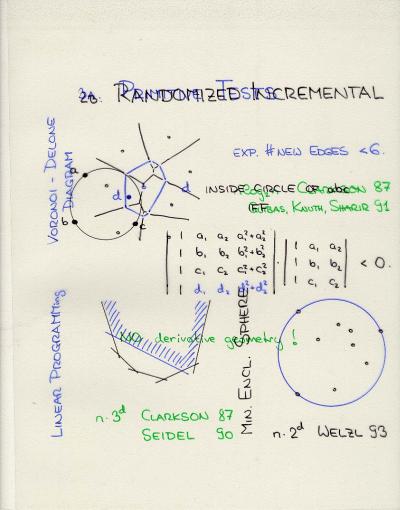 2a. PRIMITIVE TESTS
2B. RANDOMIZED INCREMENTAL
VORONOI - DELONE
DIAGRAM
EXP. # NEW EDGES < 6.
a
b
c
d
d
INSIDE CIRCLE OF abc
IFF
CLARKSON 87
GUIBAS, KNUTH, SHARIR 91
1 a₁ a₂ a₁²+a₂²
1 b₁ b₂ b₁²+b₂²
1 c₁ c₂ c₁²+c₂²
1 d₁ d₂ d₁²+d₂²
1 a₁ a₂
1 b₁ b₂
1 c₁ c₂
< 0.
LINEAR PROGRAMMing
NO derivative geometry!
MIN. ENCL. SPHERE
n·3ᵈ CLARKSON 87
SEIDEL 90
n·2ᵈ WELZL 93